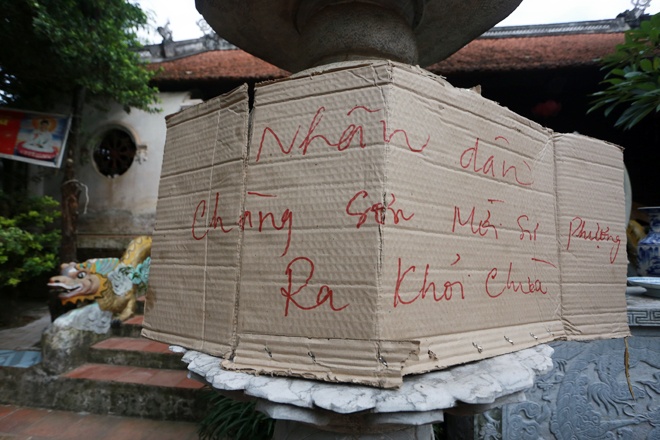 Nhân dân
Chàng Sơn Mời Sư Phượng
Ra Khỏi Chùa